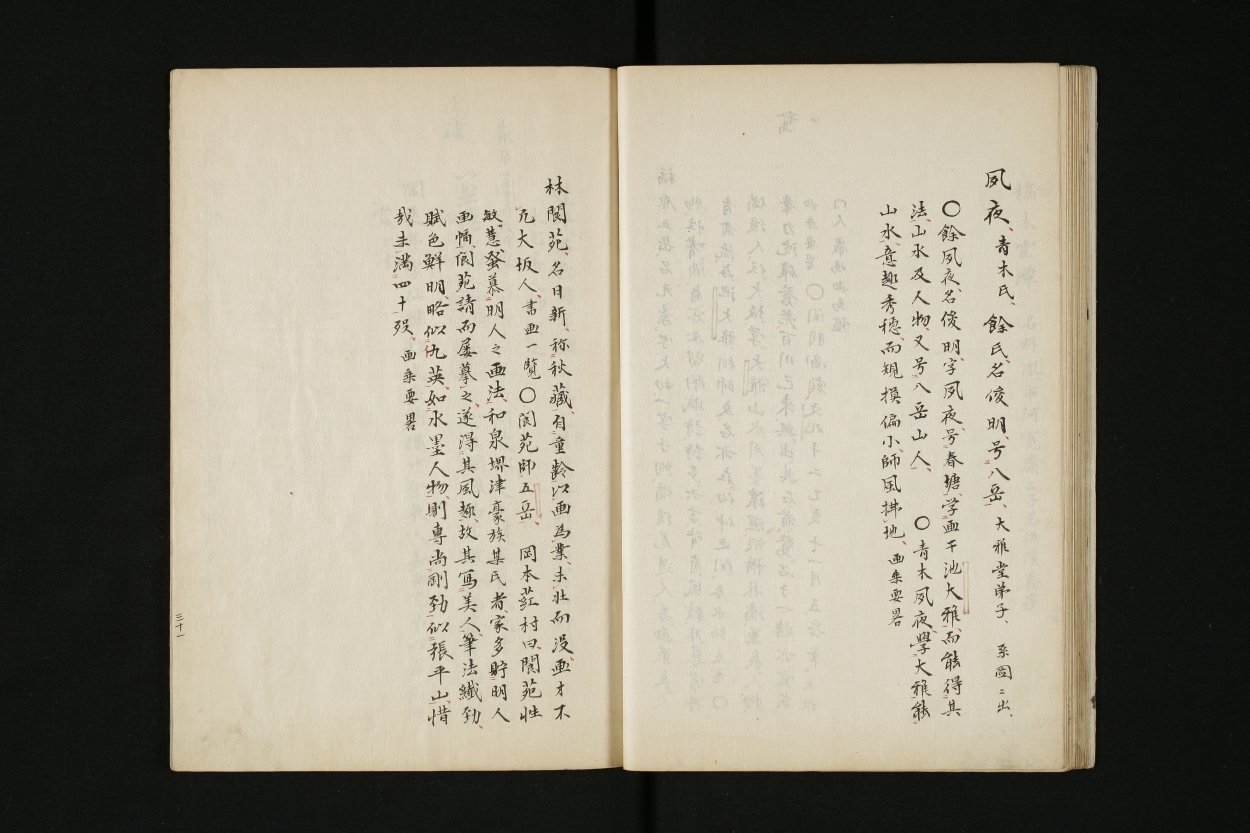 夙夜、青木氏、餘氏、名俊明、号八岳、大雅堂弟子、系図ニ出、
〇餘夙夜、名俊明、字夙夜、号春塘、学画于池大雅、而能得其
法、山水及人物、又号八岳山人、　〇青木夙夜學大雅能
山水、意趣秀穏、而規摸偏小、師風拂地、画乗要畧
林閬苑、名日新、称秋藏、自童齡以画為業、未壮而没、画才不
凡、大坂人、書画一覧〇閬苑師五岳、岡本葒村曰、閬苑性
敏慧、発慕明人之画法、和泉堺津豪族某氏者、家多貯明人
画幅、閬苑請而屡摹之、遂得其風趣、故其写美人、筆法纎勁、
賦色鮮明、略似仇英、如水墨人物、則專尚剛勁、似張平山、惜
哉未満四十殁、画乗要畧
三十一